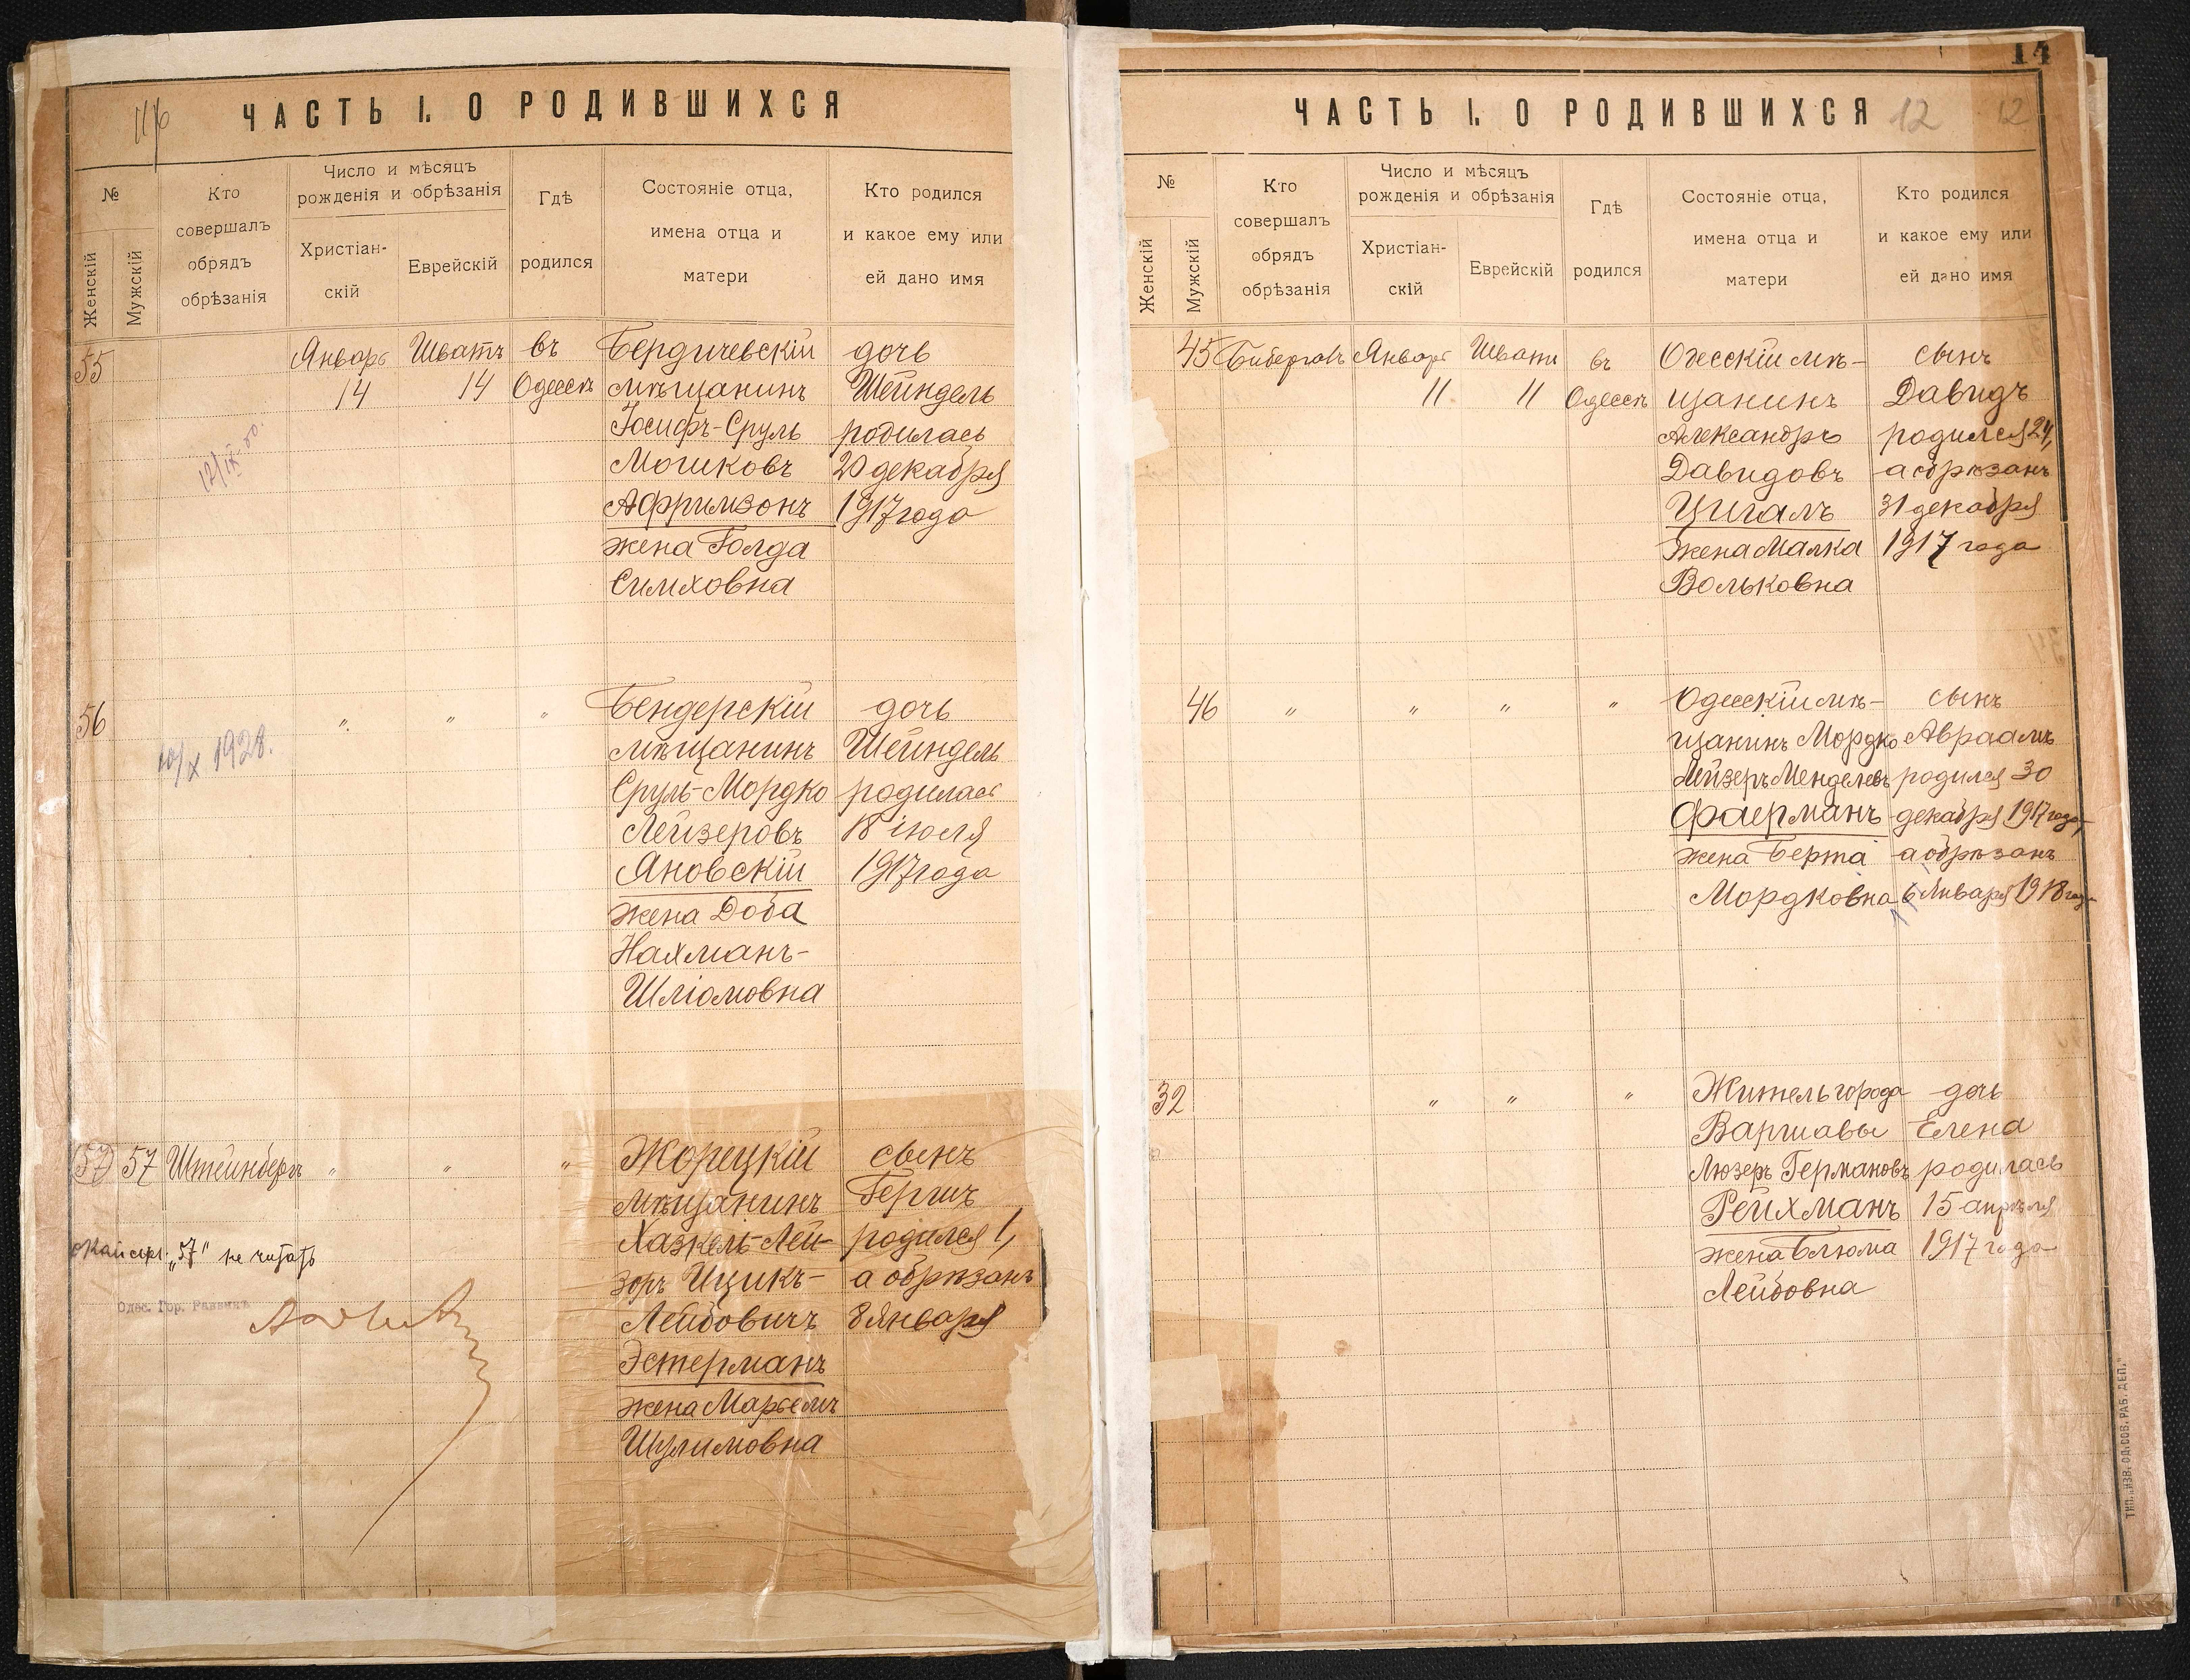 ЧАСТЬ I. О РОДИВШИХСЯ
№
Женскій
Мужскій
Кто
совершалъ
обрядъ
обрѣзанія
Число и мѣсяцъ
рожденія и обрѣзанія
Христіан-
скій
Еврейскій
Гдѣ
родился
Состояніе отца,
имена отца и
матери
Кто родился
и какое ему или
ей дано имя
55
Январь
14
Шватъ
14
въ
Одессѣ
Бердичевскій
мѣщанинъ
Іосифъ-Сруль
Мошковъ
Афримзонъ
жена Голда
Симховна
дочь
Шейндель
родилась
20 декабря
1917 года
56
10/X 1928.
" " "
Бендерскій
мѣщанинъ
Сруль-Мордко
Лейзеровъ
Яновскій
жена Доба
Нахманъ-
Шліомовна
дочь
Шейндель
родилась
18 іюля
1917 года
57 57 Штейнбергъ " " "
"57" не читать
Одес. Гор. Раввинъ
Жорецкій
мѣщанинъ
Хазкель-Лей-
зоръ Ицикъ-
Лейбовичъ
Эстерманъ
жена Марьемъ
Шулимовна
сынъ
Гершъ
родился 1,
а обрѣзанъ
8 Января
14
ЧАСТЬ I. О РОДИВШИХСЯ 12 12
№
Женскій
Мужскій
Кто
совершалъ
обрядъ
обрѣзанія
Число и мѣсяцъ
рожденія и обрѣзанія
Христіан-
скій
Еврейскій
Гдѣ
родился
Состояніе отца,
имена отца и
матери
Кто родился
и какое ему или
ей дано имя
45
Январь
11
Шватъ
11
въ
Одессѣ
Одесскій мѣ-
щанинъ
Александръ
Давидовъ
Цигалъ
жена Малка
Вольковна
сынъ
Давидъ
родился 24,
а обрѣзанъ
31 декабря
1917 года
46 " " " "
Одесскій мѣ-
щанинъ Мордко
Лейзеръ Менделевъ
Фаерманъ
жена Берта
Мордковна
сынъ
Авраамъ
родился 30
декабря 1917 года,
а обрѣзанъ
6 Января 1918 года
32 " " "
Житель города
Варшавы
Люзеръ Германовъ
Рейхманъ
жена Блюма
Лейбовна
дочь
Елена
родилась
15 апрѣля
1917 года
ТИП. „ИЗВ. ОД. СОВ. РАБ. ДЕП."